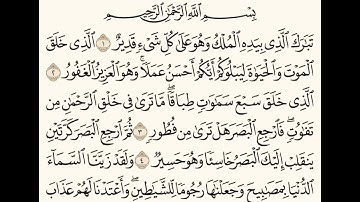 بِسْمِ اللَّهِ الرَّحْمَٰنِ الرَّحِيمِ
تَبَارَكَ الَّذِي بِيَدِهِ الْمُلْكُ وَهُوَ عَلَىٰ كُلِّ شَيْءٍ قَدِيرٌ ١ الَّذِي خَلَقَ
الْمَوْتَ وَالْحَيَاةَ لِيَبْلُوَكُمْ أَيُّكُمْ أَحْسَنُ عَمَلًا ۚ وَهُوَ الْعَزِيزُ الْغَفُورُ ٢
الَّذِي خَلَقَ سَبْعَ سَمَاوَاتٍ طِبَاقًا ۖ مَا تَرَىٰ فِي خَلْقِ الرَّحْمَٰنِ مِن
تَفَاوُتٍ ۖ فَارْجِعِ الْبَصَرَ هَلْ تَرَىٰ مِن فُطُورٍ ٣ ثُمَّ ارْجِعِ الْبَصَرَ كَرَّتَيْنِ
يَنقَلِبْ إِلَيْكَ الْبَصَرُ خَاسِئًا وَهُوَ حَسِيرٌ ٤ وَلَقَدْ زَيَّنَّا السَّمَاءَ
الدُّنْيَا بِمَصَابِيحَ وَجَعَلْنَاهَا رُجُومًا لِّلشَّيَاطِينِ ۖ وَأَعْتَدْنَا لَهُمْ عَذَابَ